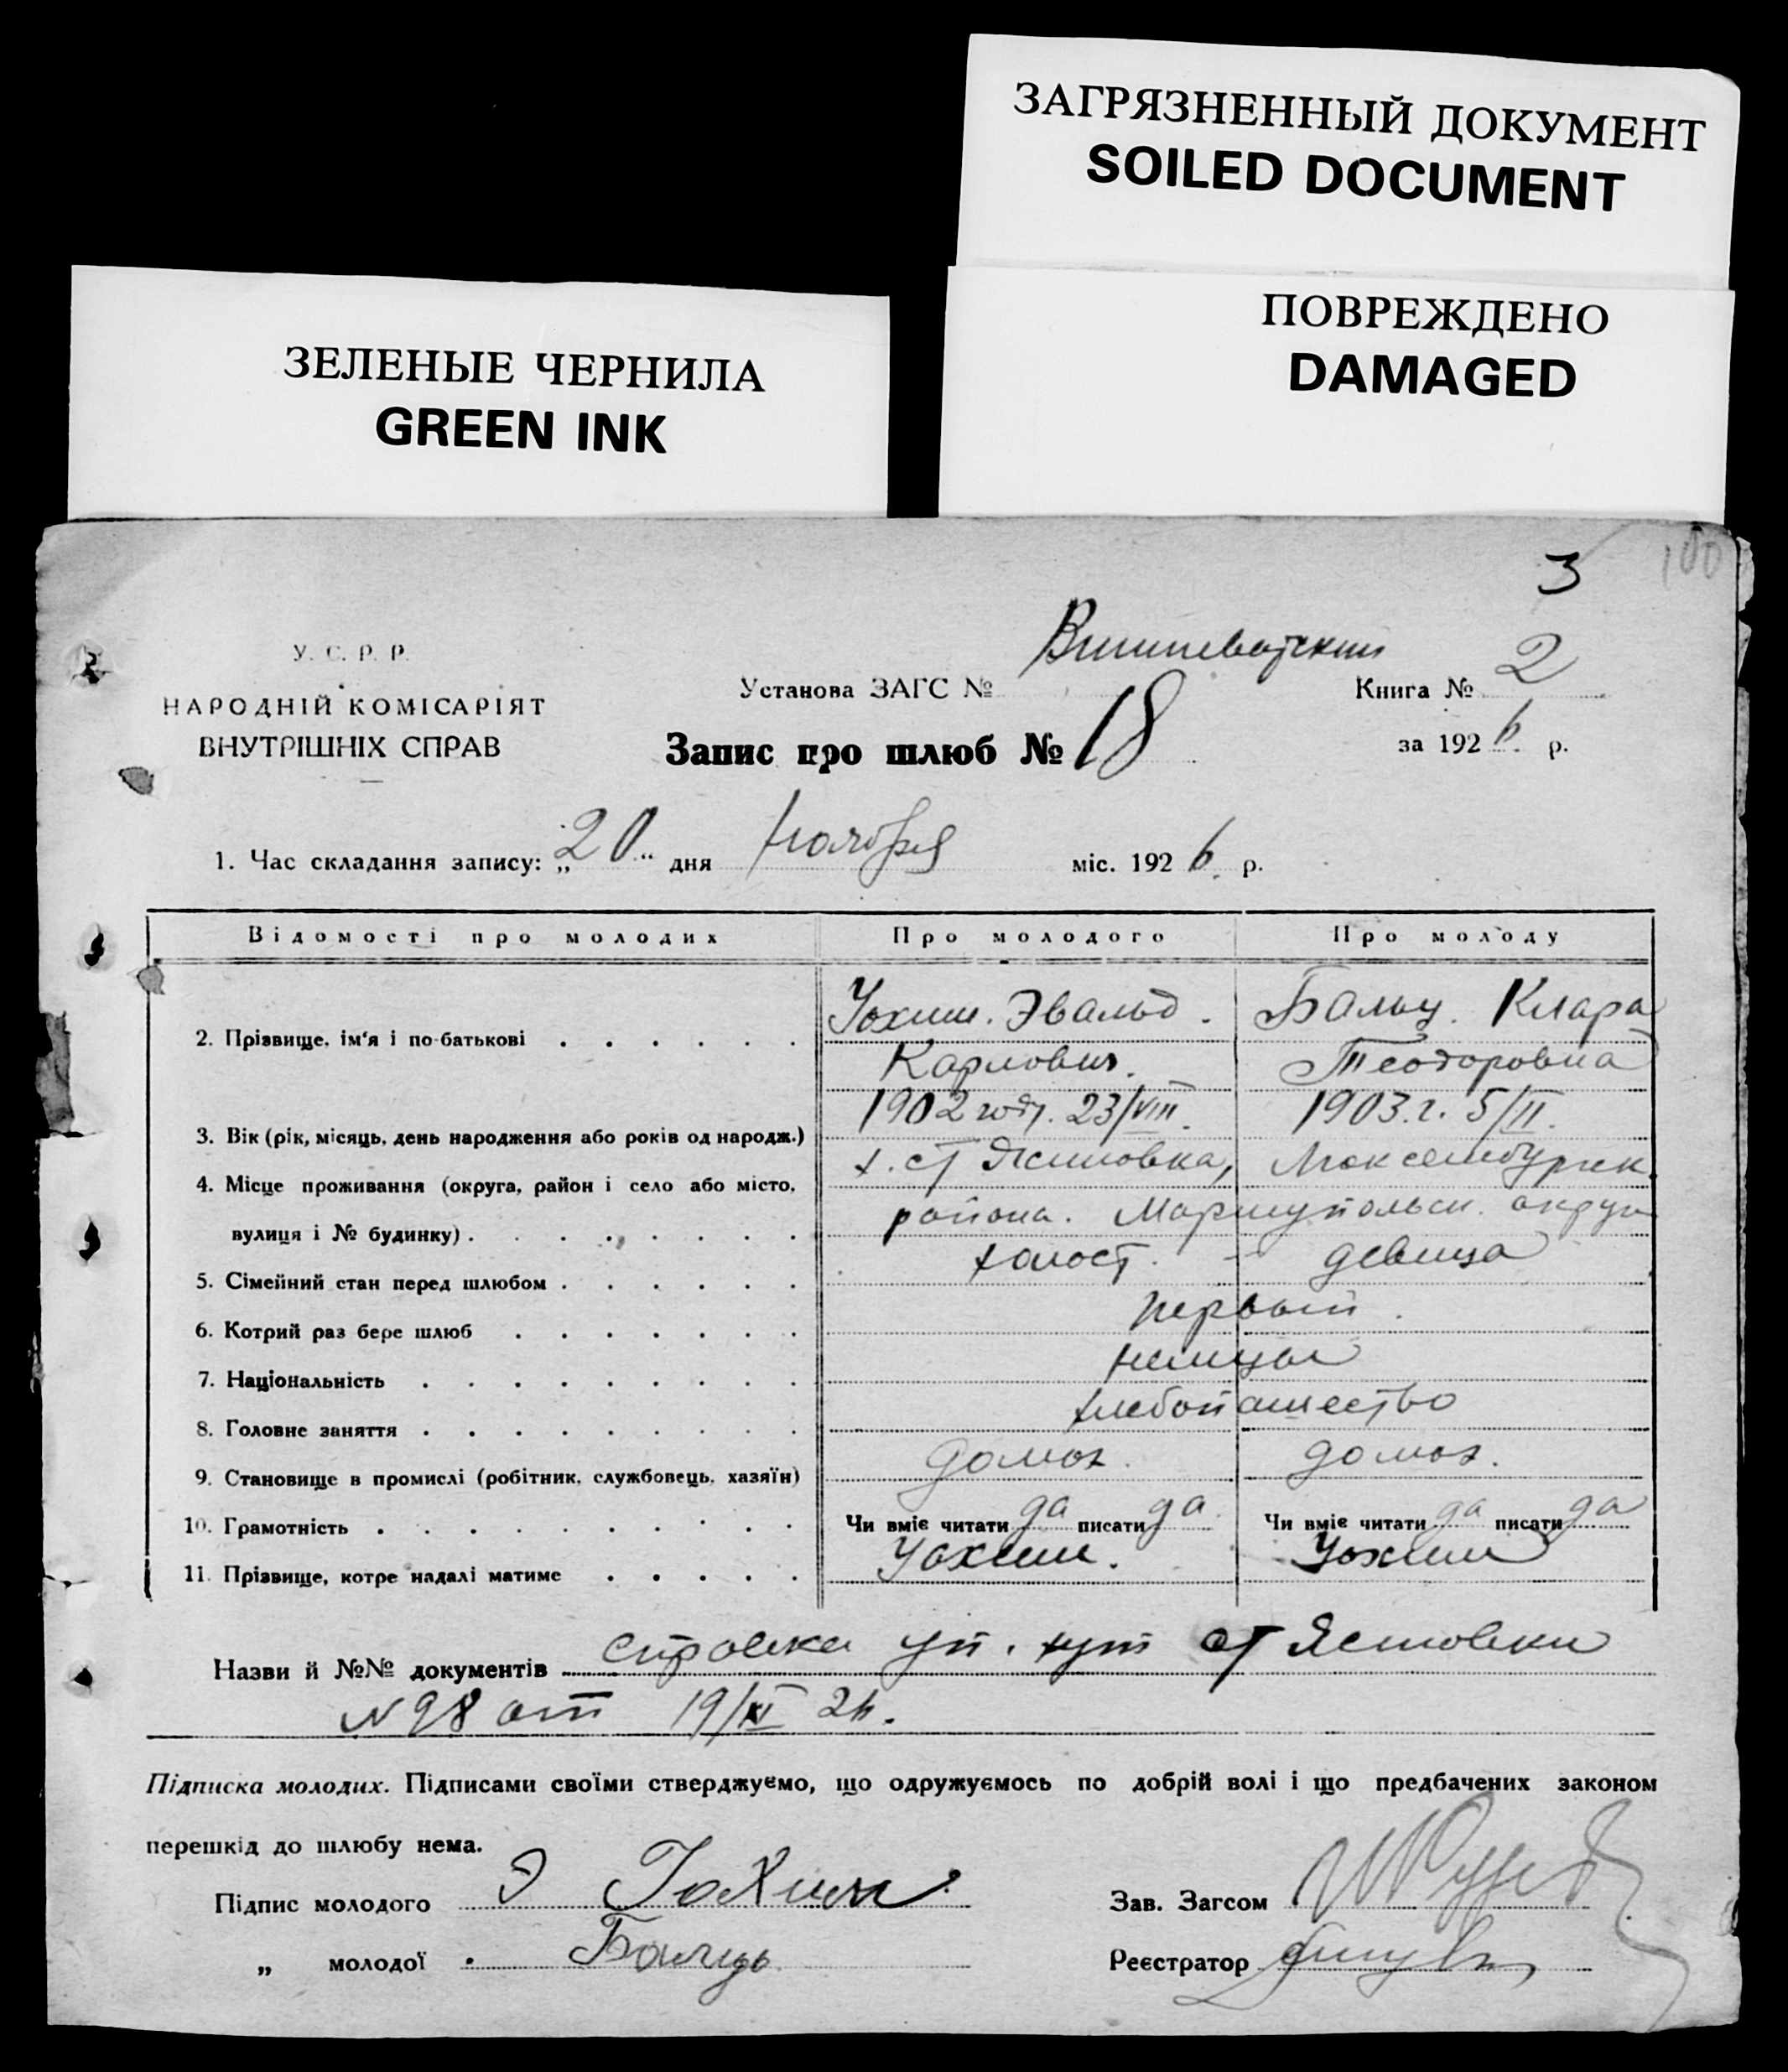 ЗАГРЯЗНЕННЫЙ ДОКУМЕНТ
SOILED DOCUMENT
ЗЕЛЕНЫЕ ЧЕРНИЛА
GREEN INK
ПОВРЕЖДЕНО
DAMAGED
3 100
У. С. Р. Р.
НАРОДНІЙ КОМІСАРІЯТ
ВНУТРІШНІХ СПРАВ
Установа ЗАГС №
Книга № 2
Запис про шлюб № 18
за 1926 р.
1. Час складання запису: „20" дня ноября міс. 1926. р.
Відомості про молодих Про молодого Про молоду
2. Прізвище, ім'я і по-батькові Иохим. Эвальд. Бальц. Клара
Карлович. Теодоровна
3. Вік (рік, місяць, день народження або років од народж.) 1902 год. 23/VIII. 1903. г. 5/II.
4. Місце проживання (округа, район і село або місто, х. ст Ясиновка, Люксембургск.
вулиця і № будинку) района. Мариупольск. округи
5. Сімейний стан перед шлюбом холост. - девица
6. Котрий раз бере шлюб первый.
7. Національність немцы
8. Головне заняття хлебопашество
9. Становище в промислі (робітник, службовець, хазяїн) домох. домох.
10. Грамотність Чи вміє читати да писати да Чи вміє читати да писати да
11. Прізвище, котре надалі матиме Иохим. Иохим
Назви й №№ документів справка уп. хут ст Ясиновки
№ 98 от 19/XI 26.
Підписка молодих. Підписами своїми стверджуємо, що одружуємось по добрій волі і що предбачених законом
перешкід до шлюбу нема.
Підпис молодого Э Иохим
Зав. Загсом
„ молодої Бальць
Реєстратор